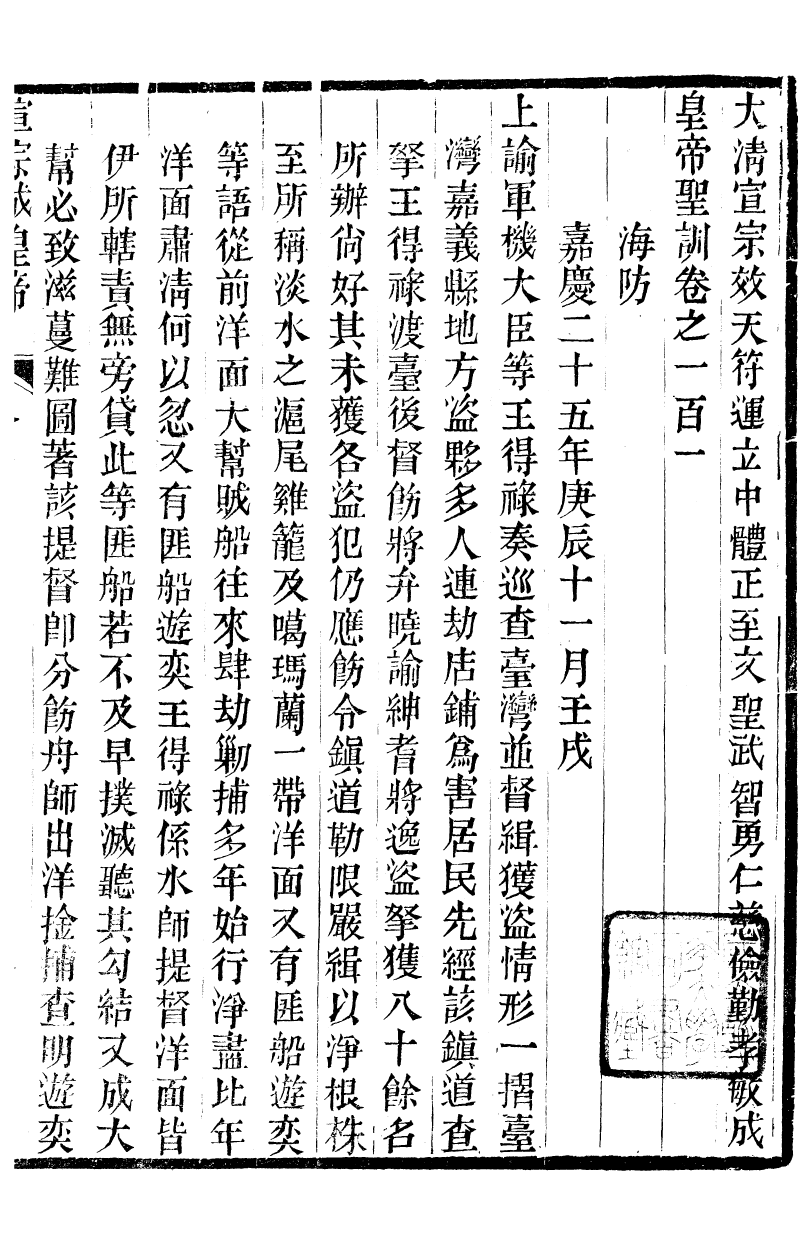 大淸宣宗效天符運立中體正至文聖武智勇仁慈儉勤孝敏成
皇帝聖訓卷之一百一
海防
嘉慶二十五年庚辰十一月壬戌
上諭軍機大臣等王得祿奏巡查臺灣並督緝獲盜情形一摺臺
灣嘉義縣地方盜夥多人連劫店鋪爲害居民先經該鎭道查
拏王得祿渡臺後督飭將弁曉諭紳耆將逸盜拏獲八十餘名
所辦尙好其未獲各盜犯仍應飭令鎭道勒限嚴緝以淨根株
至所稱淡水之滬尾雞籠及噶瑪蘭一帶洋面又有匪船遊奕
等語從前洋面大幫賊船往來肆劫勦捕多年始行淨盡比年
洋面肅淸何以忽又有匪船遊奕王得祿係水師提督洋面皆
伊所轄責無旁貸此等匪船若不及早撲滅聽其勾結又成大
幫必致滋蔓難圖著該提督卽分飭舟師出洋捡捕查明遊奕
宣宗成皇帝
一